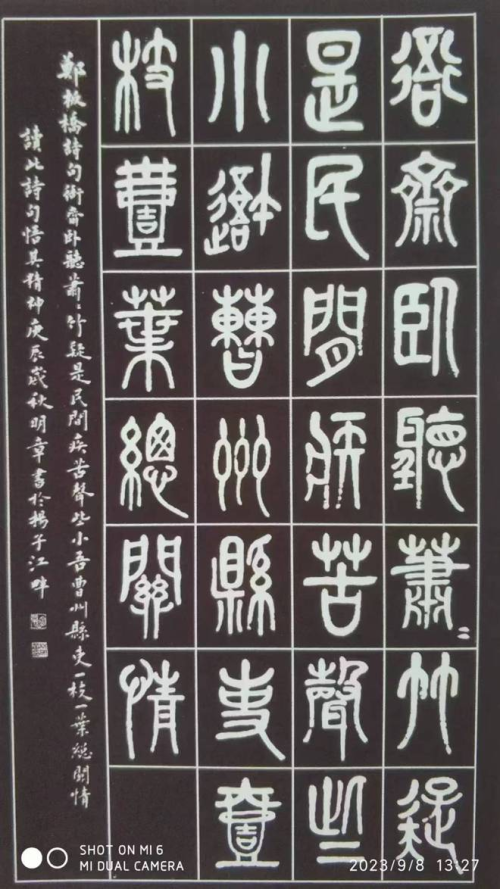 衙齋臥聽蕭〻竹疑
是民間疾苦聲些
小吾曹州縣吏壹
枝壹葉總關情
鄭板橋詩句衙齋卧聽蕭〻竹疑是民間疾苦聲些小吾曹州縣吏一枝一葉總關情
讀此詩句悟其精神庚辰歲秋明章書於揚子江畔
SHOT ON MI 6
MI DUAL CAMERA
2023/9/8 13:27